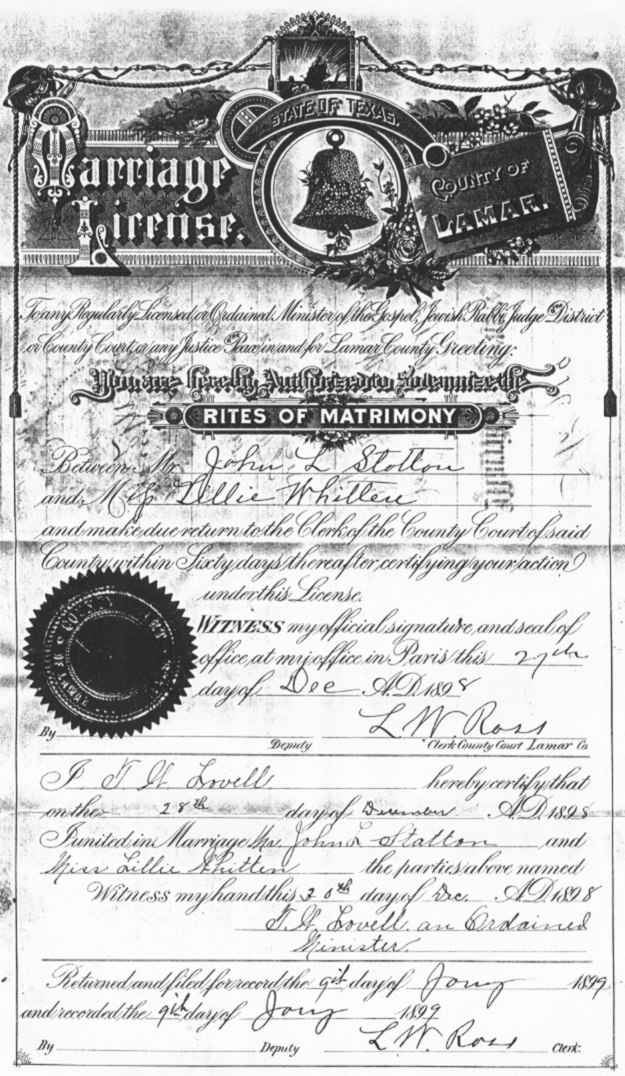 STATE OF TEXAS.
Marriage License.
COUNTY OF LAMAR.
To any Regularly Licensed or Ordained Minister of the Gospel, Jewish Rabbi, Judge of District
or County Court, or any Justice of Peace in and for Lamar County Greeting:
You are hereby Authorized to Solemnize the
RITES OF MATRIMONY
Between Mr. John L Stotton
and Miss Lillie Whitten
and make due return to the Clerk of the County Court of said
County within Sixty days thereafter, certifying your action
under this License.
WITNESS my official signature, and seal of
office, at my office in Paris this 27th
day of Dec A.D. 1898
L W. Ross
By Deputy Clerk County Court Lamar Co
I T. W. Lovell hereby certify that
on the 28th day of December A.D. 1898
I united in Marriage Mr. John L Statton and
Miss Lillie Whitten the parties above named
Witness my hand this 30th day of Dec. A.D. 1898
T. W. Lovell an Ordained
Minister.
Returned and filed for record the 9th day of Jany 1899
and recorded the 9th day of Jany 1899
L W. Ross
By Deputy Clerk.